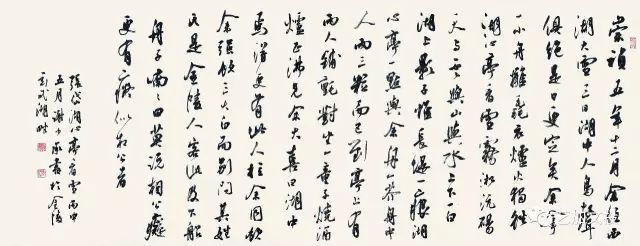 崇禎五年十二月余住西
湖大雪三日湖中人鳥聲
俱絕是日更定矣余拏
一小舟擁毳衣爐火獨往
湖心亭看雪霧凇沆碭
天與雲與山與水上下一白
湖上影子惟長堤一痕湖
心亭一點與余舟一芥舟中
人兩三粒而已到亭上有
兩人鋪氈對坐一童子燒酒
爐正沸見余大喜曰湖中
焉得更有此人拉余同飲
余強飲三大白而別問其姓
氏是金陵人客此及下船
舟子喃喃曰莫說相公癡
更有癡似相公者
張岱湖心亭看雪丙申
五月謝少承書於金陵
玄武湖畔